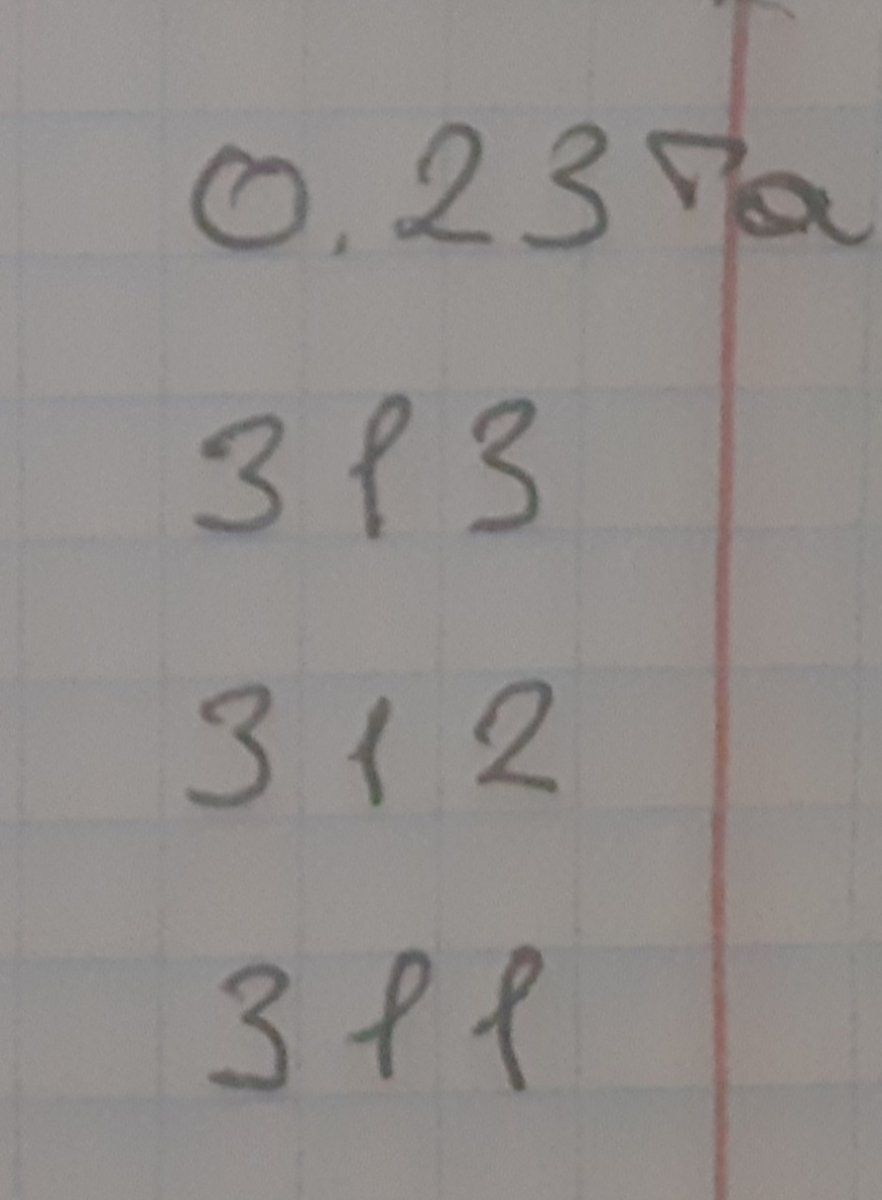 0.23 га
313
312
311